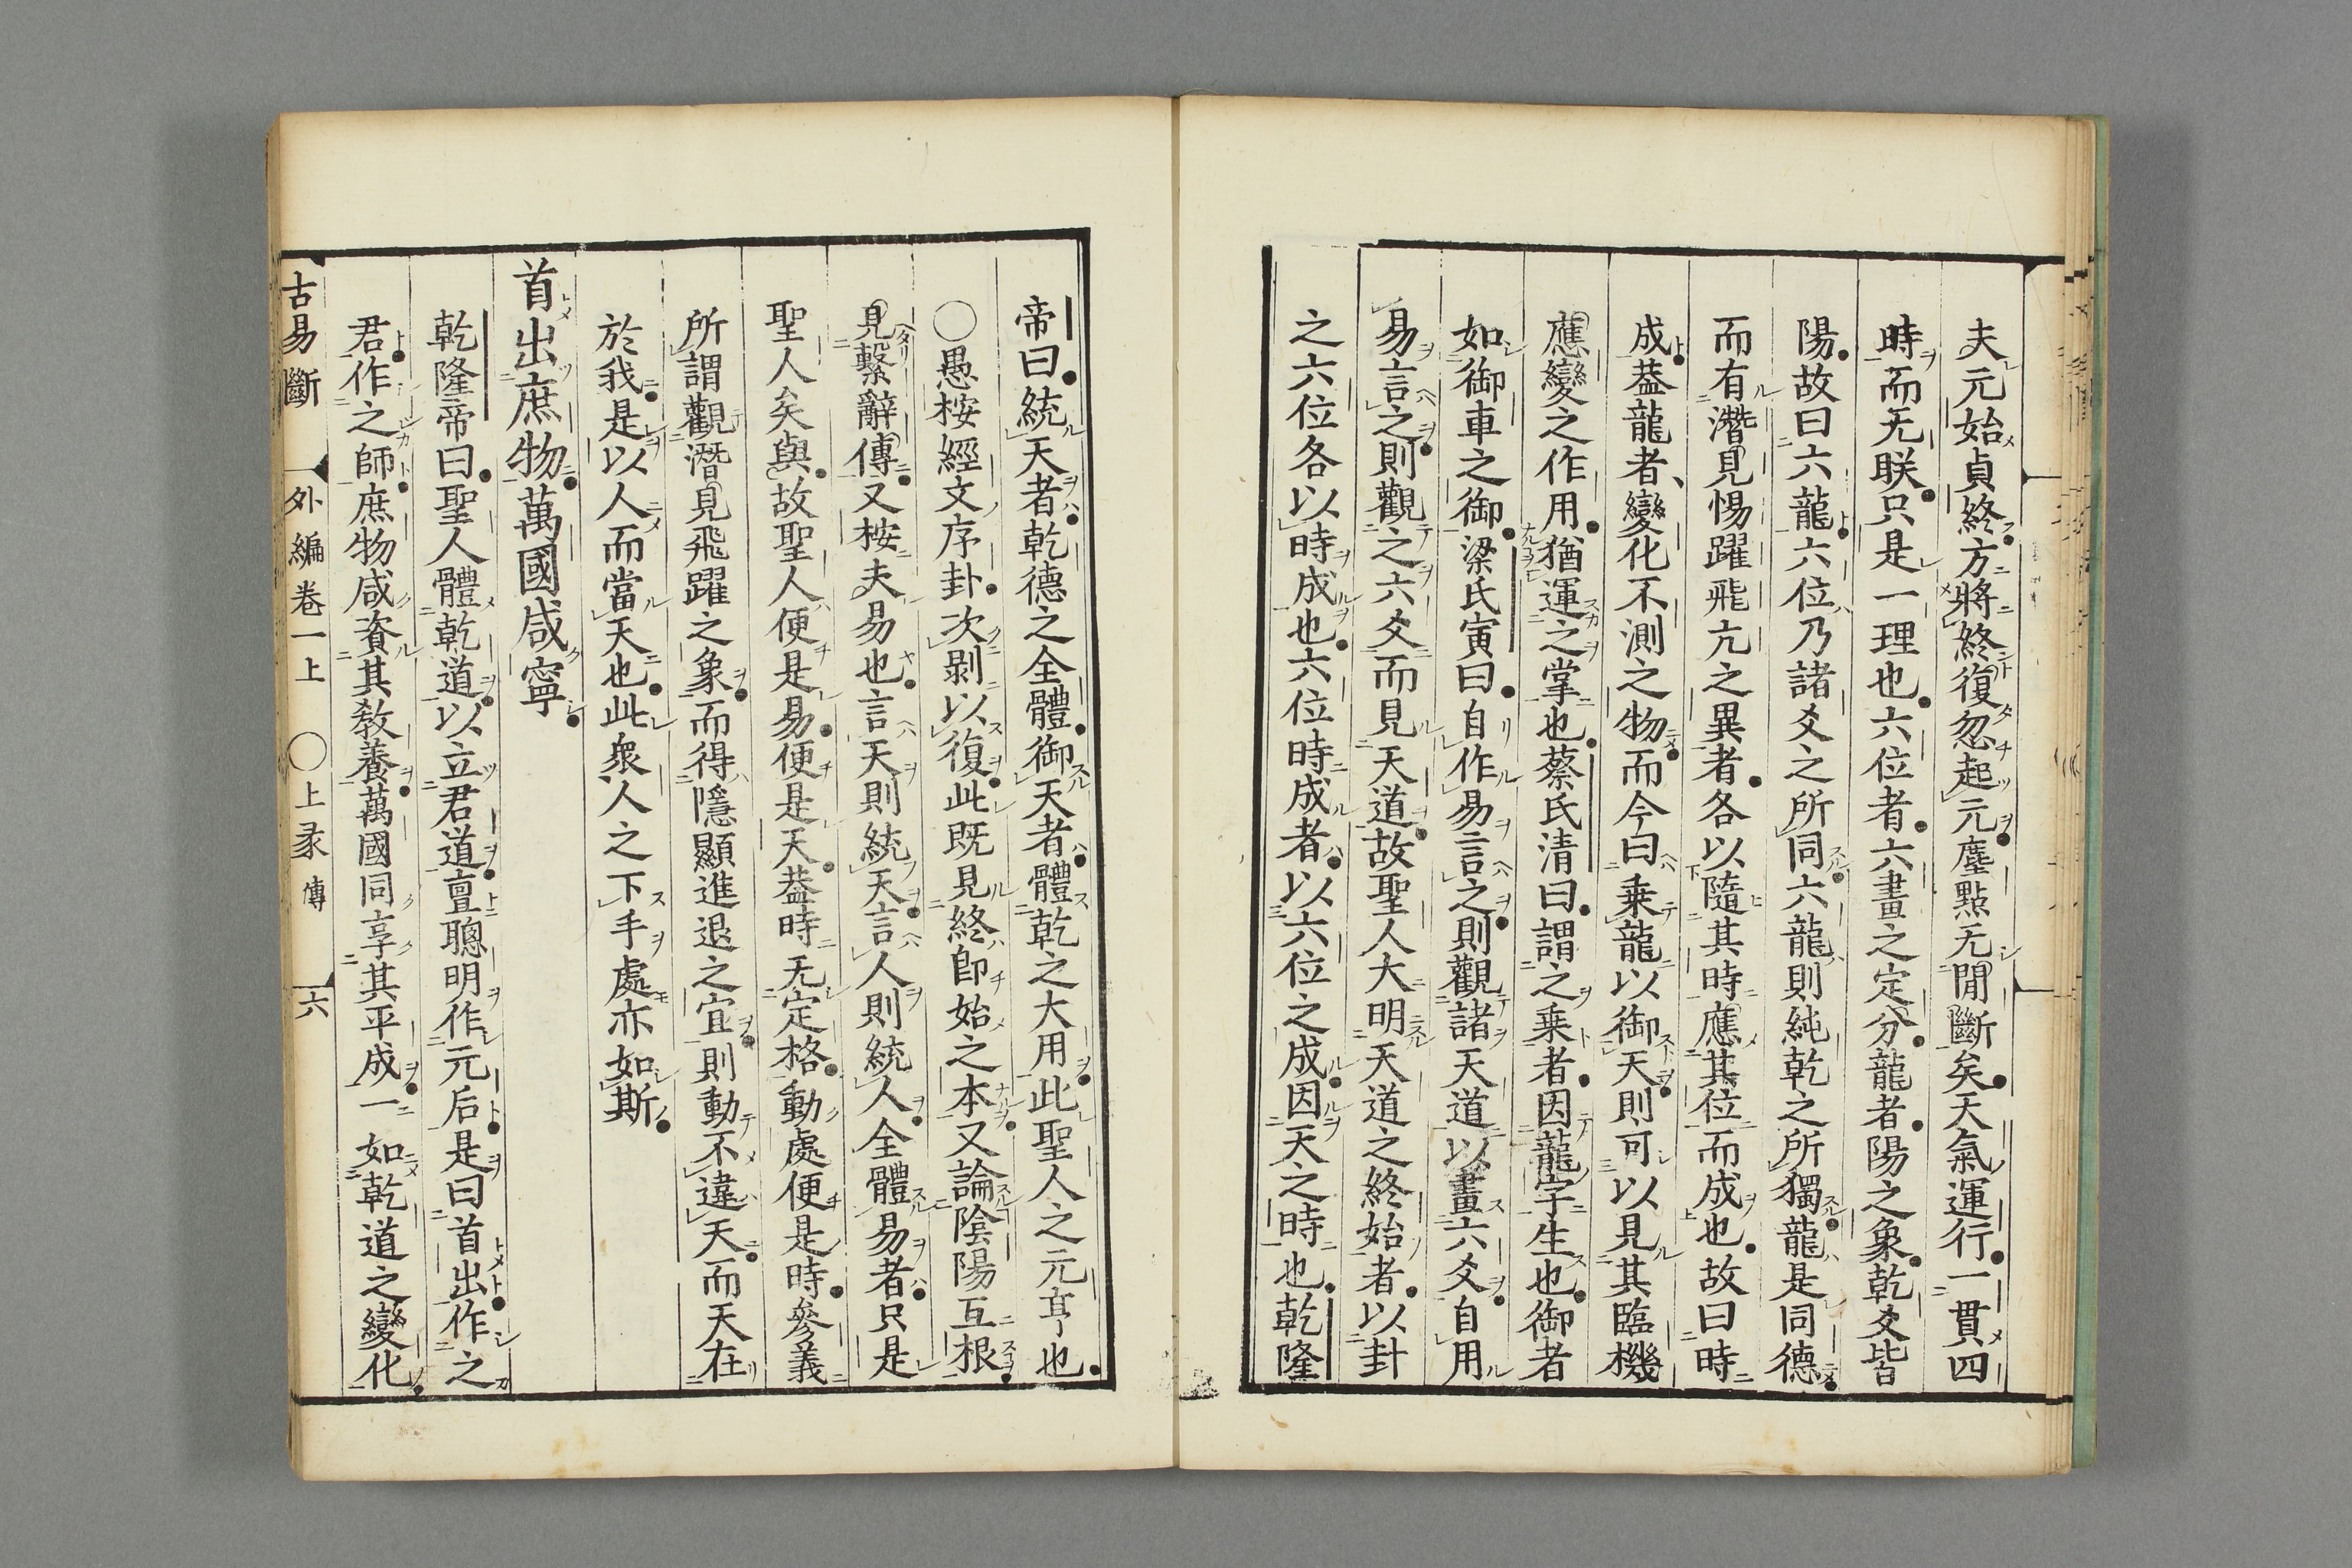 夫元始貞終方將終復忽起元塵點无閒斷矣天氣運行一貫四
時而无联只是一理也六位者六畫之定分龍者陽之象乾爻皆
陽故曰六龍六位乃諸爻之所同六龍則純乾之所獨龍是同德
而有潛見惕躍飛亢之異者各以隨其時應其位而成也故曰時
成葢龍者變化不測之物而今曰乗龍以御天則可以見其臨機
應變之作用猶運之掌也蔡氏清曰謂之乗者因龍字生也御者
如御車之御梁氏寅曰自作易言之則觀諸天道以畫六爻自用
易言之則觀之六爻而見天道故聖人大明天道之終始者以卦
之六位各以時成也六位時成者以六位之成因天之時也乾隆
帝曰統天者乾德之全體御天者體乾之大用此聖人之元亨也
○愚桉經文序卦次剝以復此既見終卽始之本又論陰陽互根
見繫辭傳又桉夫易也言天則統天言人則統人全體易者只是
聖人矣與故聖人便是易便是天葢時无定格動處便是時參義
所謂觀潛見飛躍之象而得隱顯進退之宜則動不違天而天在
於我是以人而當天也此衆人之下手處亦如斯
首出庶物萬國咸寧
乾隆帝曰聖人體乾道以立君道亶聰明作元后是曰首出作之
君作之師庶物咸資其敎養萬國同享其平成一如乾道之變化
古易斷 外編卷一上 ○上彖傳 六